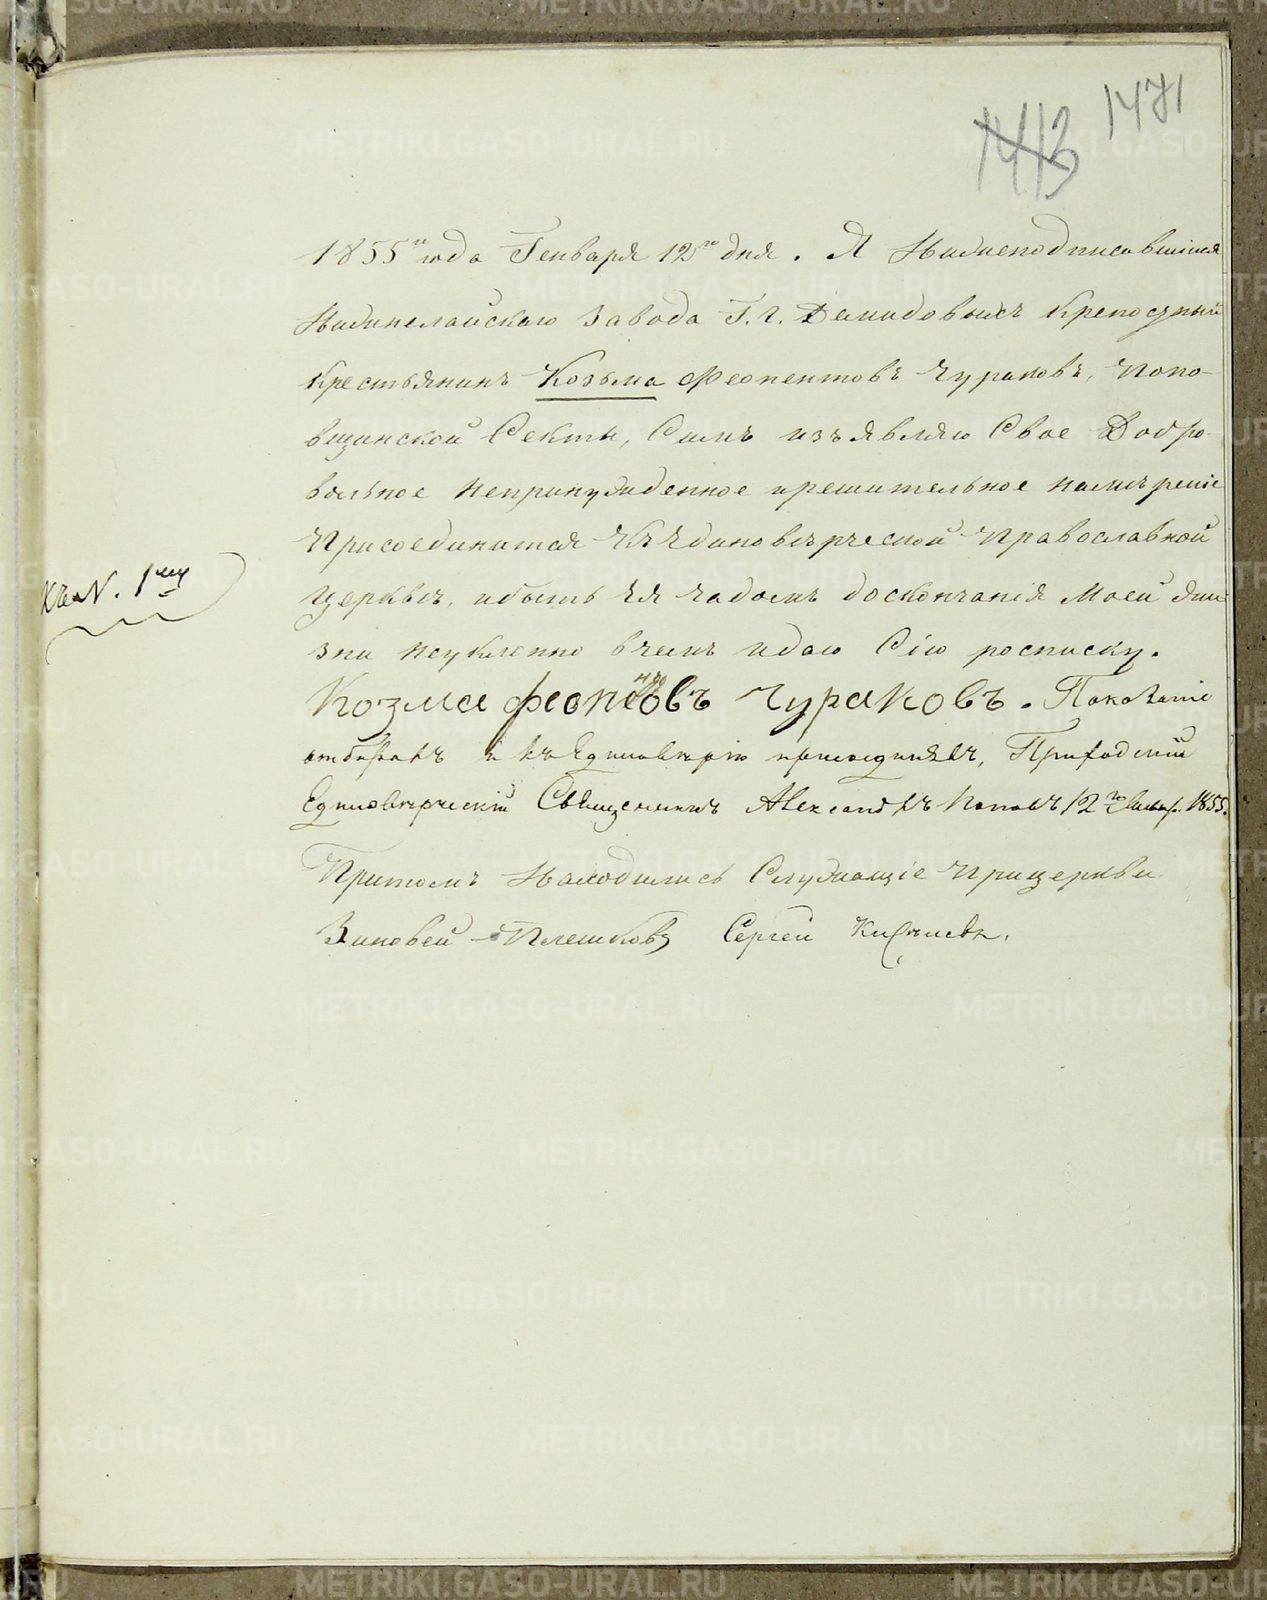 1413 1471
1855го года Генваря 12го дня. Я Нижеподписавшийся
Нижнелайскаго завода Г. Г. Демидовыхъ Крепосный
Крестьянинъ Козьма Феопентовъ Чураковъ, Попо-
вщинской Секты, Симъ изъявляю Свое Добро-
вольное непринужденное ирешительное намерѣніе
Присоединится Къ Единоверческой Православной
Церкви, ибыть Ея Чадомъ доскончанія Моей Жи-
зни неуклонно вчемъ идаю Сію росписку.
Къ N. 1му
Козма феопеновъ Чураковъ. Показаніе
отбиралъ и къ Единоверію присоединялъ, Приходскій
Единоверческій Священникъ Alexandръ Поповъ 12го Генвар. 1855.
Притомъ Находились Служащіе Прицеркви
Зиновей Плешковъ Сергей